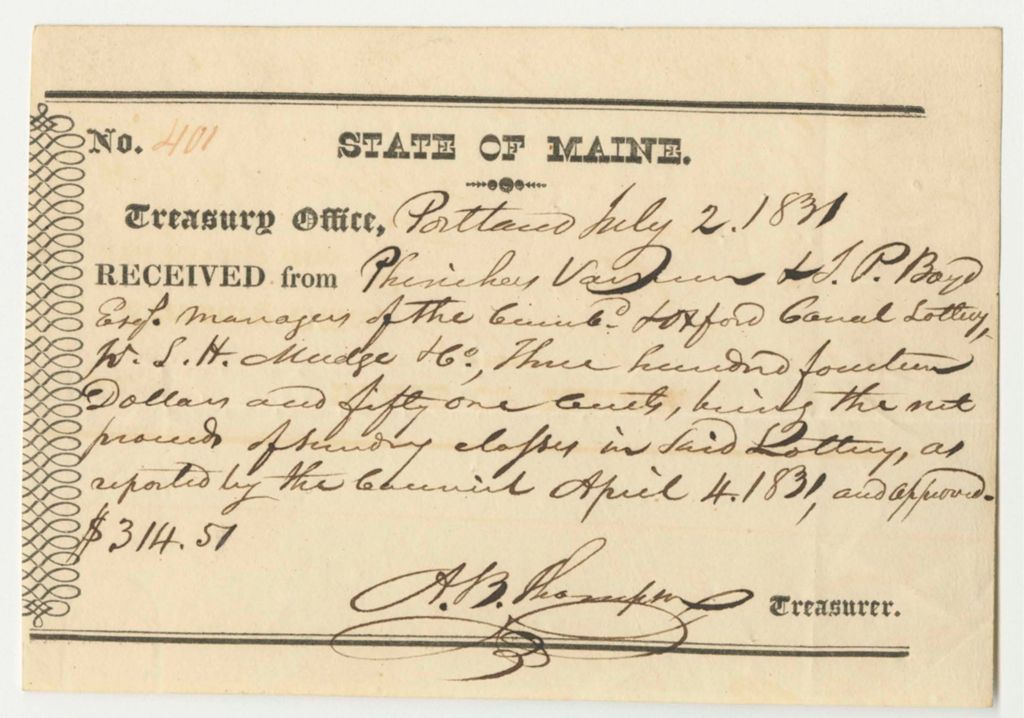 No. 401 STATE OF MAINE.
Treasury Office, Portland July 2. 1831
RECEIVED from Phinehas Varnum & J. P. Boyd
Esqs. managers of the Cumbd. & Oxford Canal Lottery,
pr. S. H. Mudge & Co., Three hundred fourteen
Dollars and fifty one Cents, being the net
proceeds of sundry classes in said Lottery, as
reported by the Council April 4. 1831, and approved.
$314.51
A. B. Thompson Treasurer.